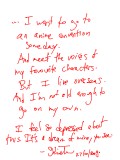 ... I want to go to
an anime convention
someday.
And meet the voices of
my favourite characters.
But I live overseas.
And I'm not old enough to
go on my own.
I feel so depressed about
this. It's a dream of mine,